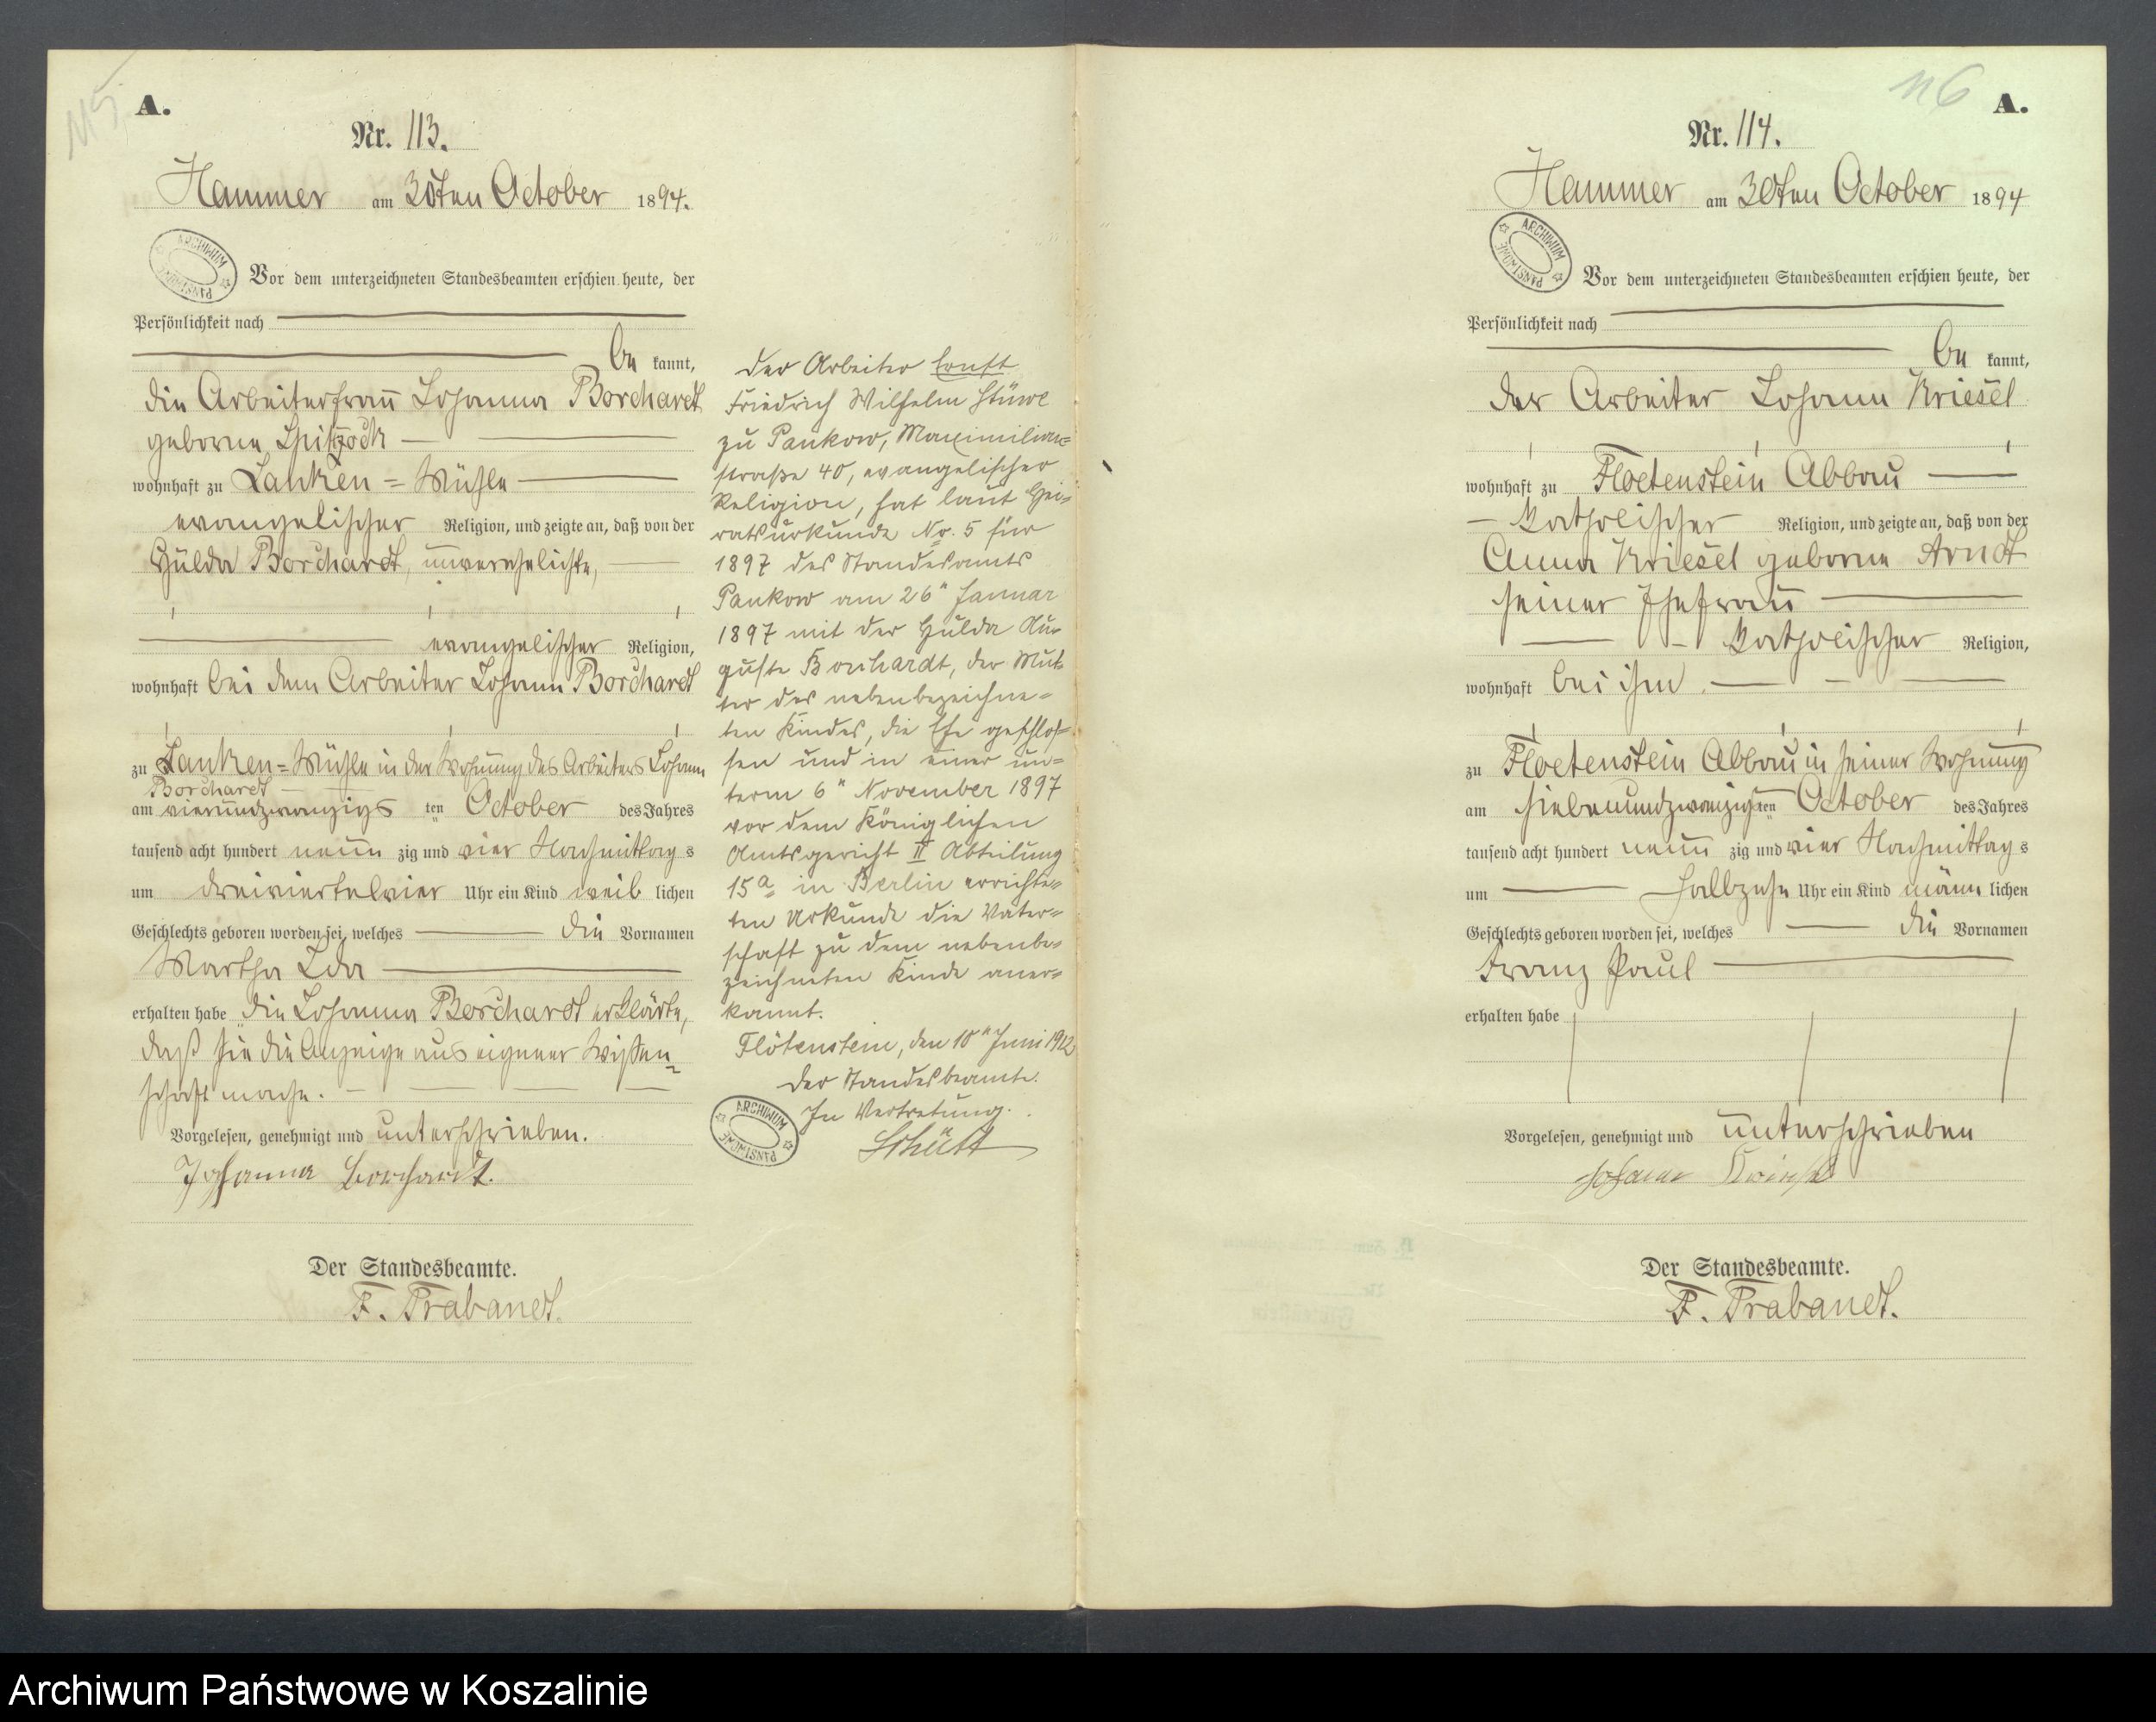 115
A.
Nr. 113.
Hammer am 30ten October 1894.
ARCHIWUM PAŃSTWOWE
Vor dem unterzeichneten Standesbeamten erschien heute, der
Persönlichkeit nach
be kannt,
die Arbeiterfrau Johanna Borchardt
geborne
wohnhaft zu Lanken=Mühle
evangelischer Religion, und zeigte an, daß von der
Hulda Borchardt, unverehelichte,
evangelischer Religion,
wohnhaft bei dem Arbeiter Johann Borchardt
zu Lanken=Mühle in der Wohnung des Arbeiters Johann
Borchardt
am vierundzwanzigs ten October des Jahres
tausend acht hundert neun zig und vier Nachmittag s
um dreiviertelvier Uhr ein Kind weib lichen
Geschlechts geboren worden sei, welches die Vornamen
Martha Ida
erhalten habe die Johanna Borchardt erklärte,
daß sie die Anzeige aus eigener Wissen=
schaft mache.
Vorgelesen, genehmigt und unterschrieben.
Johanna Borchardt.
Der Standesbeamte.
F. Trabandt.
Der Arbeiter Ernst
Friedrich Wilhelm Stüwe
zu Pankow, Maximilian=
straße 40, evangelischer
Religion, hat laut Hei=
ratsurkunde No. 5 für
1897 des Standesamts
Pankow am 26" Januar
1897 mit der Hulda Au=
guste Borchardt, der Mut=
ter des nebenbezeichne=
ten Kindes, die Ehe geschlos=
sen und in einer un=
term 6" November 1897
vor dem Königlichen
Amtsgericht II Abteilung
15a in Berlin errichte=
ten Urkunde die Vater=
schaft zu dem nebenbe=
zeichneten Kinde aner=
kannt.
Flötenstein, den 10" Juni 1912
Der Standesbeamte.
In Vertretung.
Schütt
ARCHIWUM PAŃSTWOWE
116
A.
Nr. 114.
Hammer am 30ten October 1894
ARCHIWUM PAŃSTWOWE
Vor dem unterzeichneten Standesbeamten erschien heute, der
Persönlichkeit nach
be kannt,
der Arbeiter Johann Kriesel
wohnhaft zu Floetenstein Abbau
Katholischer Religion, und zeigte an, daß von der
Anna Kriesel geborne Arndt
seiner Ehefrau
Katholischer Religion,
wohnhaft bei ihm
zu Floetenstein Abbau in seiner Wohnung
am siebenundzwanzigsten October des Jahres
tausend acht hundert neun zig und vier Nachmittag s
um halbzehn Uhr ein Kind männ lichen
Geschlechts geboren worden sei, welches die Vornamen
Franz Paul
erhalten habe
Vorgelesen, genehmigt und unterschrieben
Johann Kriesel
Der Standesbeamte.
F. Trabandt.
Archiwum Państwowe w Koszalinie